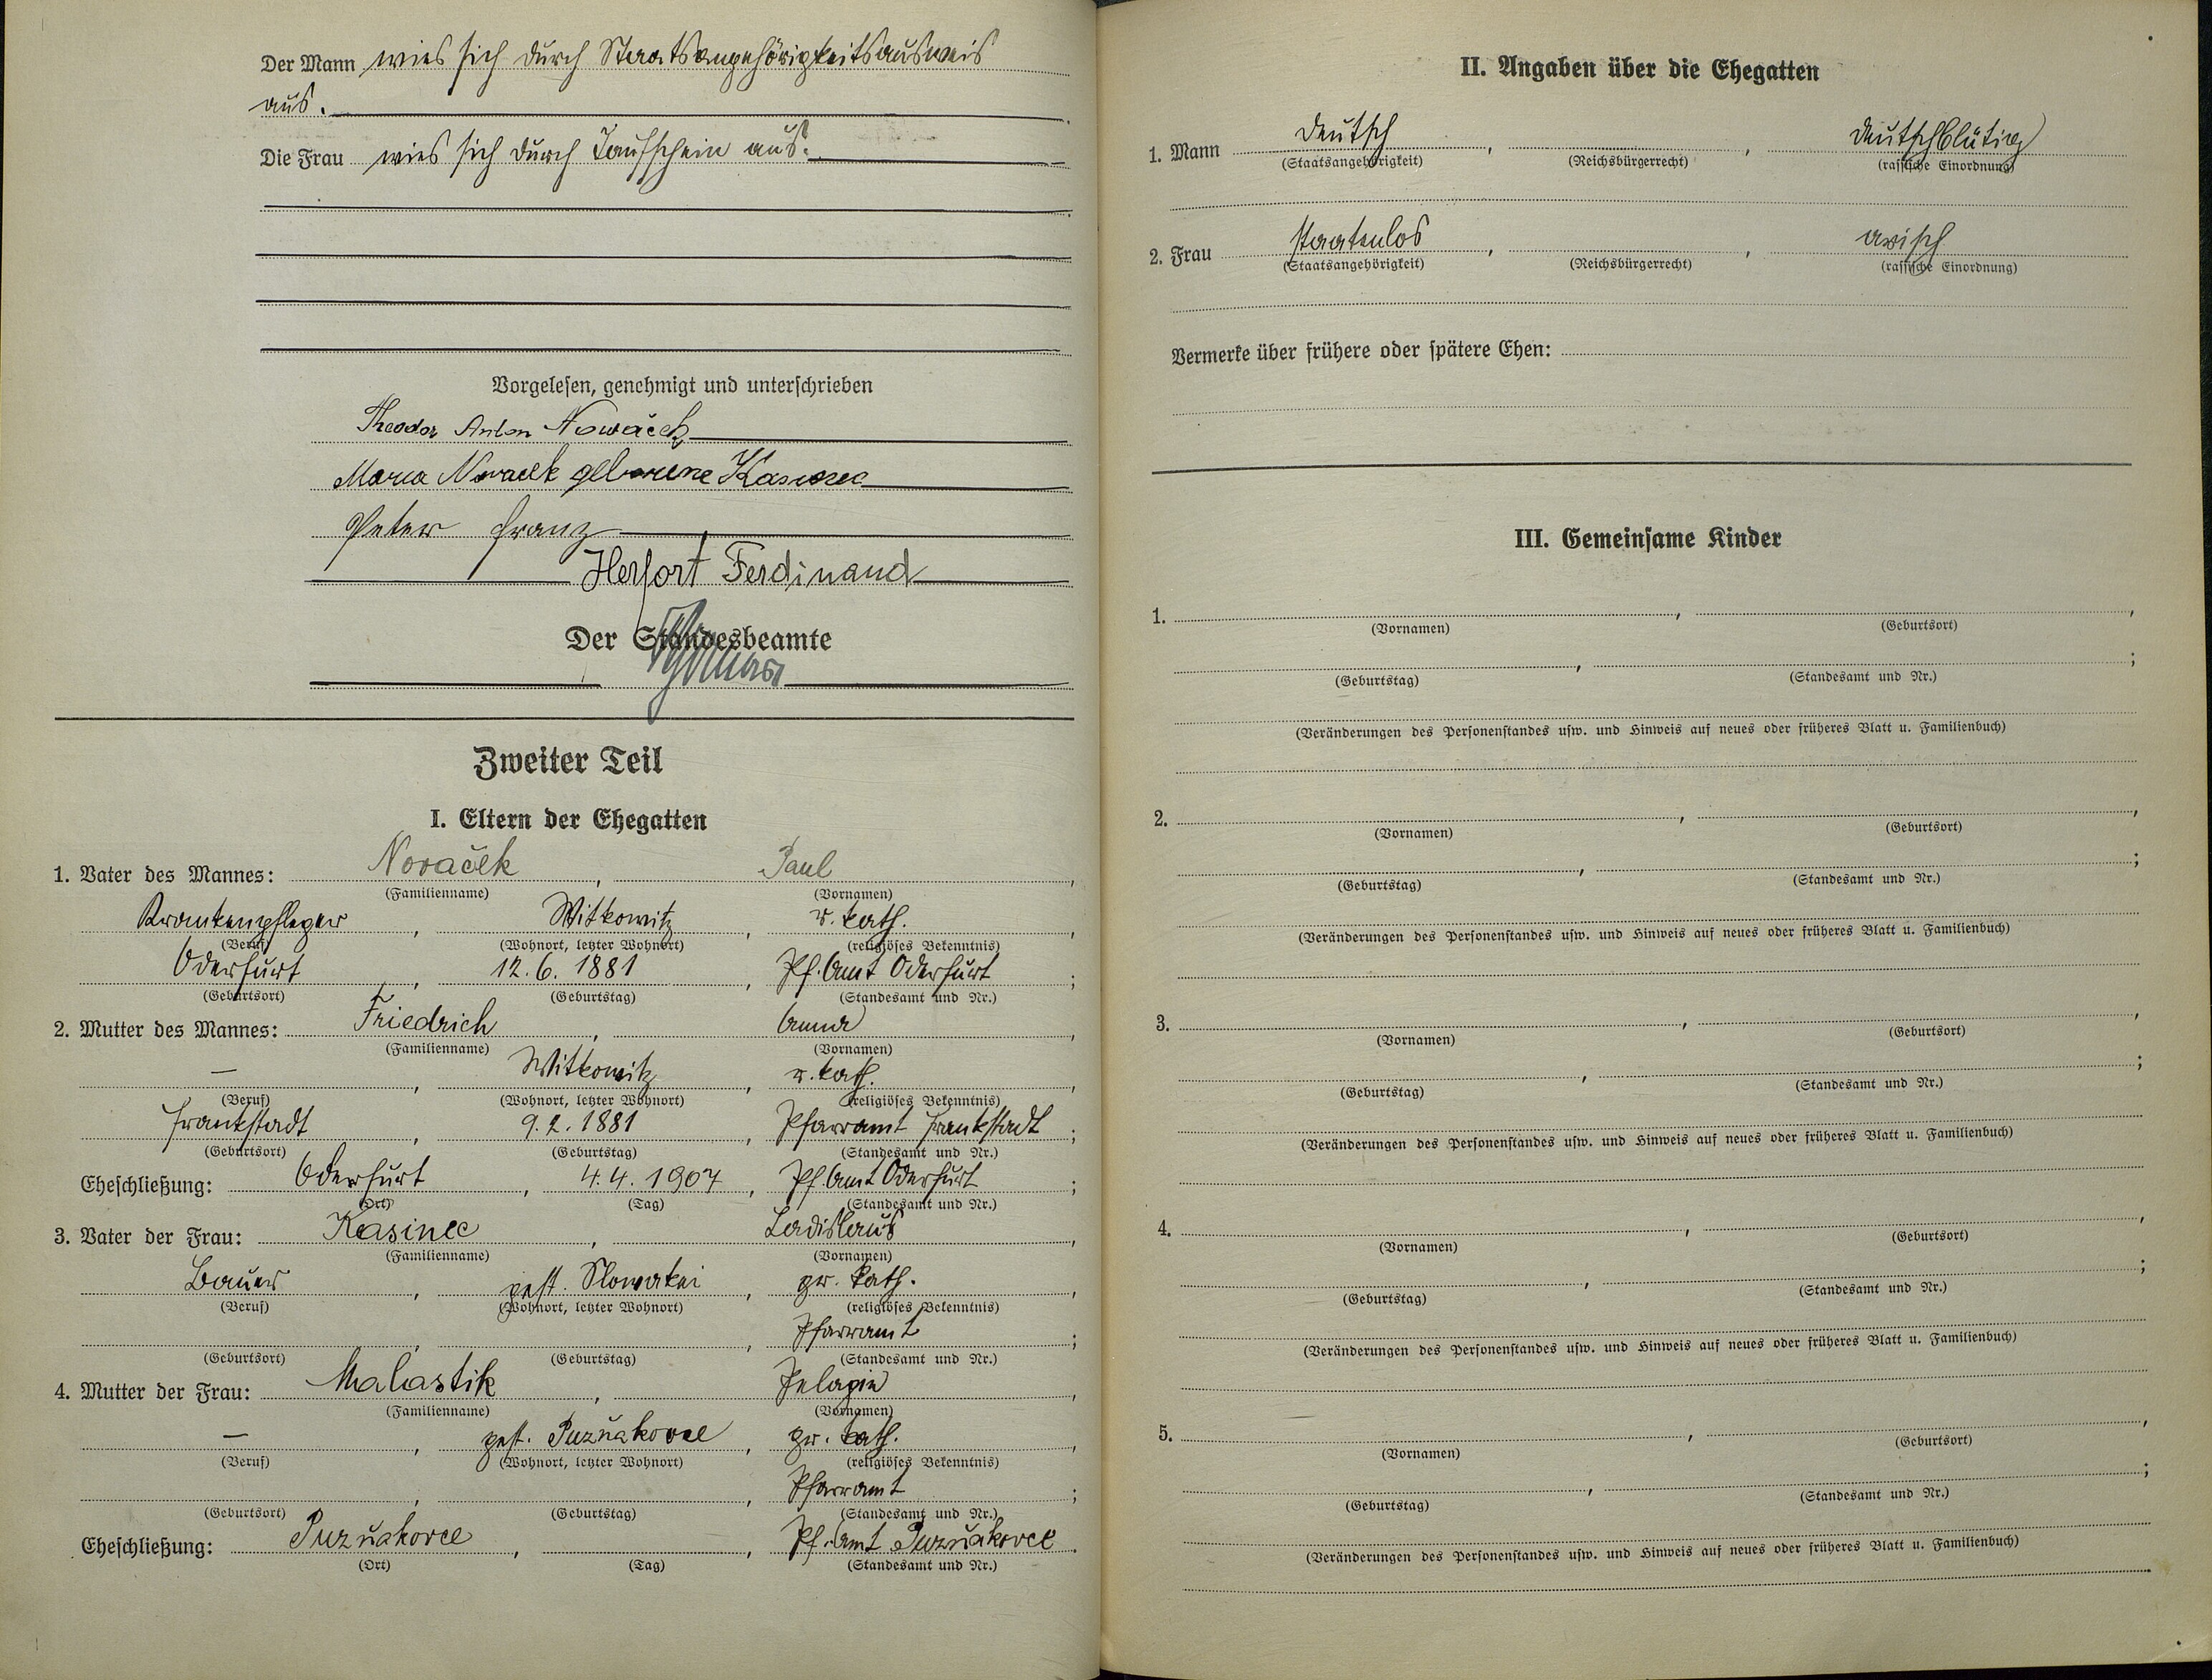 Der Mann wies sich durch Staatsangehörigkeitsausweis
aus.
Die Frau wies sich durch Taufschein aus.
Vorgelesen, genehmigt und unterschrieben
Theodor Anton Nowaček
Maria Novacek geborene Kasinec
Peter Franz
Herfort Ferdinand
Der Standesbeamte
Zweiter Teil
I. Eltern der Ehegatten
1. Vater des Mannes: Novaček, Paul,
(Familienname) (Vornamen)
Krankenpfleger, Witkowitz, r. kath.,
(Beruf) (Wohnort, letzter Wohnort) (religiöses Bekenntnis)
Oderfurt, 12. 6. 1881, Pf. Amt Oderfurt;
(Geburtsort) (Geburtstag) (Standesamt und Nr.)
2. Mutter des Mannes: Friedrich, Anna,
(Familienname) (Vornamen)
—, Witkowitz, r. kath.,
(Beruf) (Wohnort, letzter Wohnort) (religiöses Bekenntnis)
Frankstadt, 9. 2. 1881, Pfarramt Frankstadt;
(Geburtsort) (Geburtstag) (Standesamt und Nr.)
Eheschließung: Oderfurt, 4. 4. 1907, Pf. Amt Oderfurt;
(Ort) (Tag) (Standesamt und Nr.)
3. Vater der Frau: Kasinec, Ladislaus,
(Familienname) (Vornamen)
Bauer, gest. Slowakei, gr. kath.,
(Beruf) (Wohnort, letzter Wohnort) (religiöses Bekenntnis)
, , Pfarramt;
(Geburtsort) (Geburtstag) (Standesamt und Nr.)
4. Mutter der Frau: Malastik, Pelagia,
(Familienname) (Vornamen)
—, gest. Puzňakovce, gr. kath.,
(Beruf) (Wohnort, letzter Wohnort) (religiöses Bekenntnis)
, , Pfarramt;
(Geburtsort) (Geburtstag) (Standesamt und Nr.)
Eheschließung: Puzňakovce, , Pf. Amt Puzňakovce.
(Ort) (Tag) (Standesamt und Nr.)
II. Angaben über die Ehegatten
1. Mann deutsch, , deutschblütig
(Staatsangehörigkeit) (Reichsbürgerrecht) (rassische Einordnung)
2. Frau staatenlos, , arisch
(Staatsangehörigkeit) (Reichsbürgerrecht) (rassische Einordnung)
Vermerke über frühere oder spätere Ehen:
III. Gemeinsame Kinder
1. , ,
(Vornamen) (Geburtsort)
, ;
(Geburtstag) (Standesamt und Nr.)
(Veränderungen des Personenstandes usw. und Hinweis auf neues oder früheres Blatt u. Familienbuch)
2. , ,
(Vornamen) (Geburtsort)
, ;
(Geburtstag) (Standesamt und Nr.)
(Veränderungen des Personenstandes usw. und Hinweis auf neues oder früheres Blatt u. Familienbuch)
3. , ,
(Vornamen) (Geburtsort)
, ;
(Geburtstag) (Standesamt und Nr.)
(Veränderungen des Personenstandes usw. und Hinweis auf neues oder früheres Blatt u. Familienbuch)
4. , ,
(Vornamen) (Geburtsort)
, ;
(Geburtstag) (Standesamt und Nr.)
(Veränderungen des Personenstandes usw. und Hinweis auf neues oder früheres Blatt u. Familienbuch)
5. , ,
(Vornamen) (Geburtsort)
, ;
(Geburtstag) (Standesamt und Nr.)
(Veränderungen des Personenstandes usw. und Hinweis auf neues oder früheres Blatt u. Familienbuch)